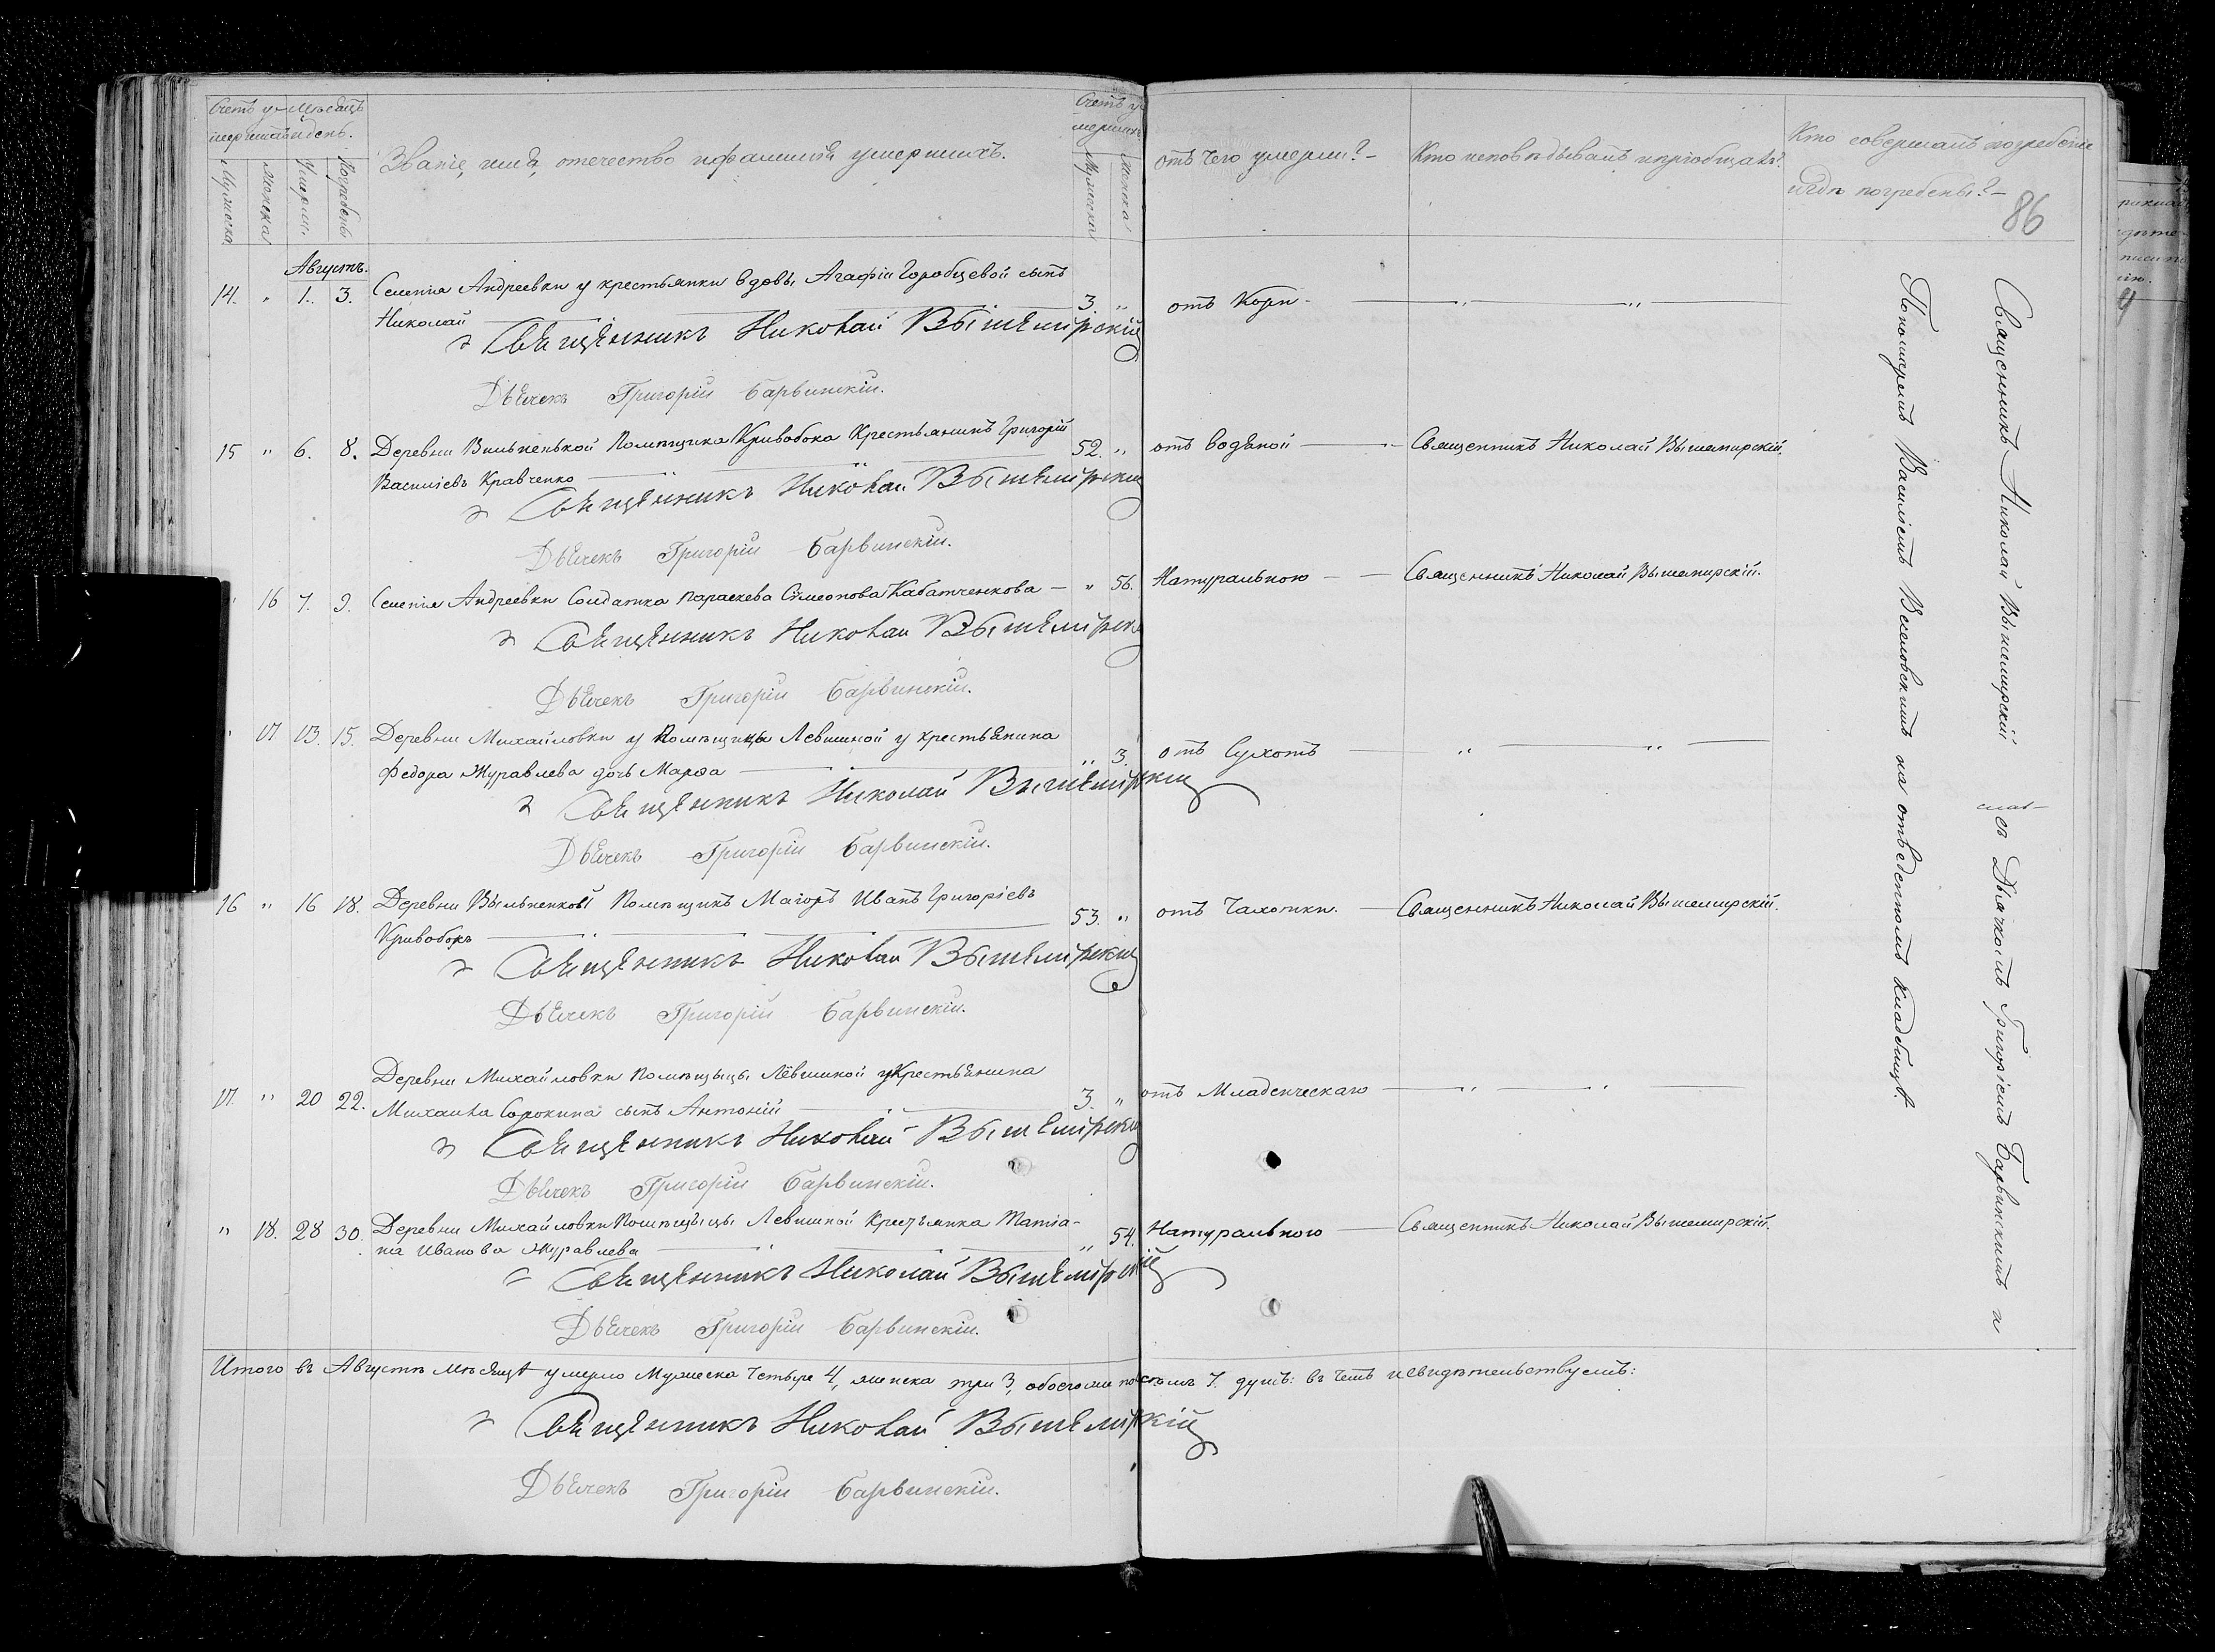 Счетъ у-
мершихъ
Мѣсяцъ
и день.
Мужеска
Женска
Умерли.
Погребены
Званіе, имя, отечество и фамилія умершихъ.
Счетъ у-
мершихъ
Мужеска
Женска
отъ чего умерли?-
Кто исповѣдывалъ и пріобщалъ?
Кто совершалъ погребеніе
и гдѣ погребены?-
86
Августъ.
14. " 1. 3. Селенія Андреевки у крестьянки вдовы Агафіи Горобцевой сынъ
Николай 3. " отъ Кори - " "
Священникъ Николай Вышемірскій
Дьячекъ Григорій Барвинскій.
15 " 6. 8. Деревни Вильненькой Помѣщика Кривобока Крестьянинъ Григорій
Василіевъ Кравченко 52. " отъ водяной Священникъ Николай Вышемирскій.
Священникъ Николай Вышемірскій
Дьячекъ Григорій Барвинскій.
" 16 7. 9. Селенія Андреевки Солдатка Параскева Симеонова Кабатченкова - " 56. Натуральною Священникъ Николай Вышемирскій.
Священникъ Николай Вышемірскій
Дьячекъ Григорій Барвинскій.
" 17 13. 15. Деревни Михайловки у Помѣщицы Левшиной у крестьянина
Федора Журавлева дочь Марѳа " 3. отъ Сухотъ " "
Священникъ Николай Вышемірскій
Дьячекъ Григорій Барвинскій.
16 " 16 18. Деревни Вильненкой Помѣщикъ Маіоръ Иванъ Григоріевъ
Кривобокъ 53. " отъ Чахотки. Священникъ Николай Вышемирскій.
Священникъ Николай Вышемірскій
Дьячекъ Григорій Барвинскій.
17. " 20 22. Деревни Михайловки Помѣщицы Лёвшиной у Крестьянина
Михаила Сорокина сынъ Антоній 3. " отъ Младенческаго " "
Священникъ Николай Вышемірскій
Дьячекъ Григорій Барвинскій.
" 18. 28 30. Деревни Михайловки Помѣщицы Левшиной Крестьянка Татіа-
на Иванова Журавлева " 54. Натурального Священникъ Николай Вышемирскій.
Священникъ Николай Вышемірскій
Дьячекъ Григорій Барвинскій.
Итого въ Августѣ мѣсяцѣ умерло Мужеска четыре 4, женска три 3, обоего же пола 7. душъ: въ чемъ и свидѣтельствуемъ:
Священникъ Николай Вышемірскій
Дьячекъ Григорій Барвинскій.
Священникъ Николай Вышемирскій съ Дьячкомъ Григоріемъ Барвинскимъ и
Пономаремъ Василіемъ на отведенномъ кладбищѣ.